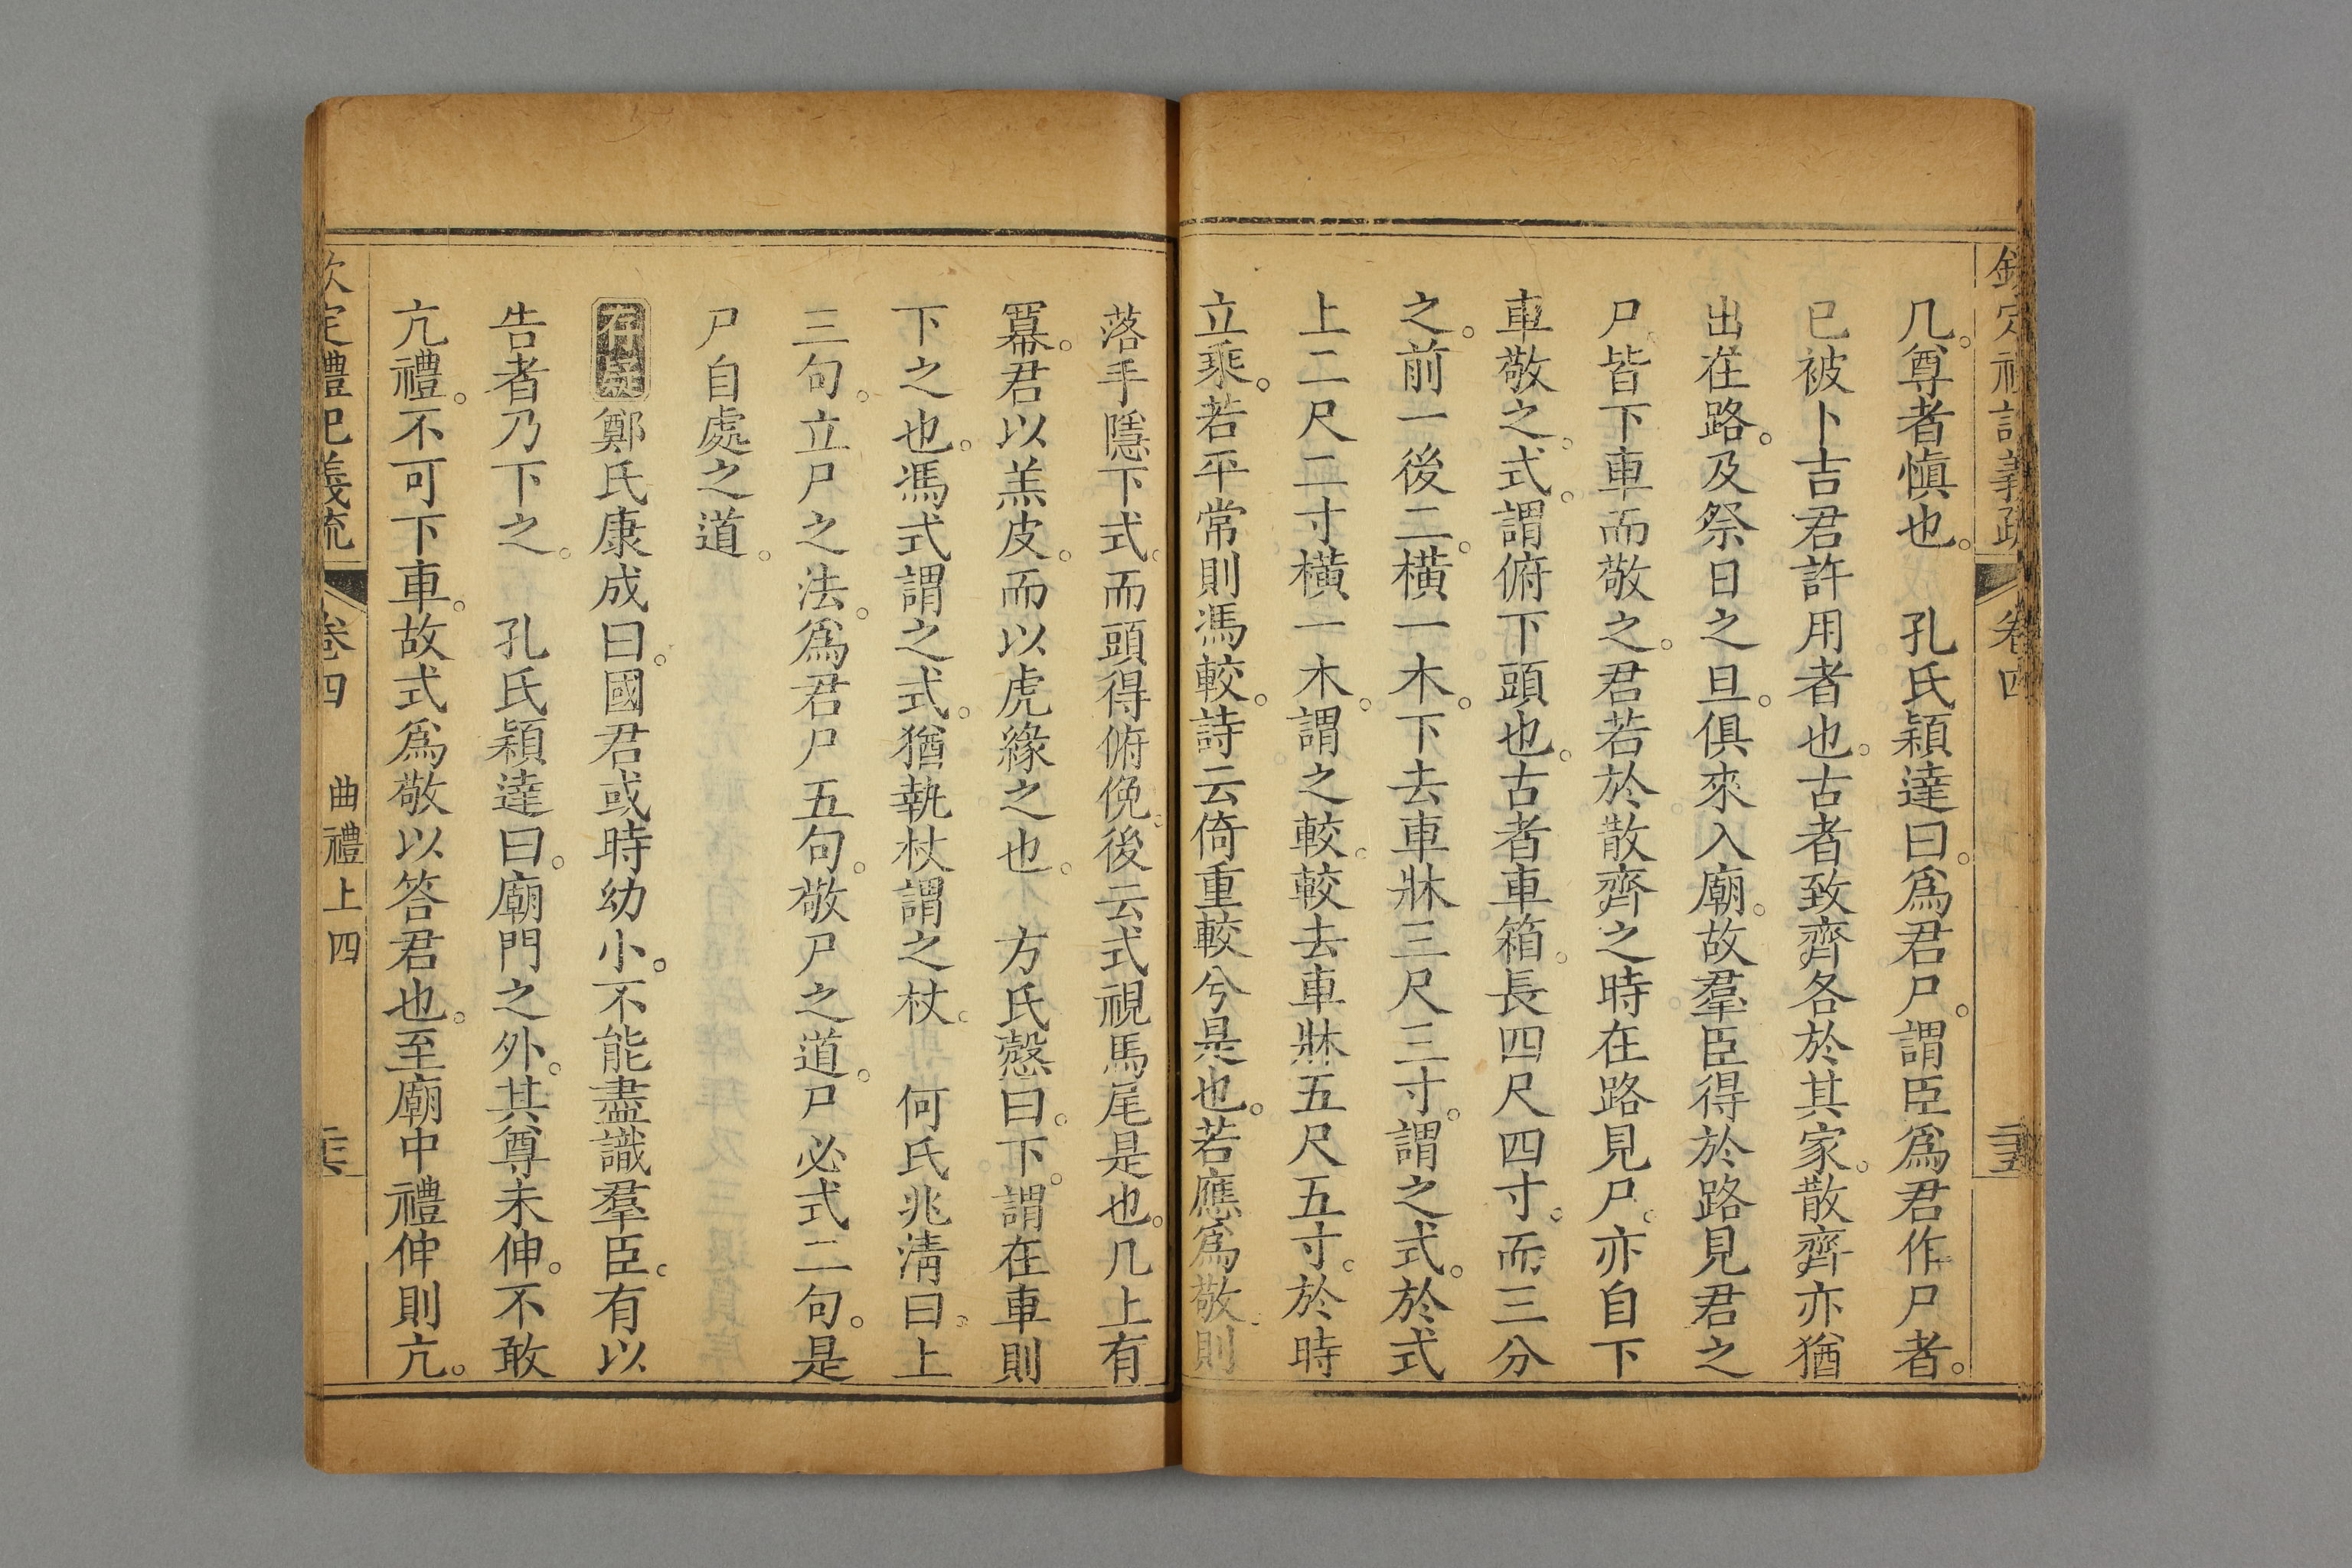 欽定禮記義疏 卷四
几。尊者愼也。 孔氏穎達曰。爲君尸。謂臣爲君作尸者。
已被卜吉君許用者也。古者致齊各於其家。散齊亦猶
出在路。及祭日之旦。俱來入廟。故羣臣得於路見君之
尸。皆下車而敬之。君若於散齊之時在路見尸。亦自下
車敬之。式。謂俯下頭也。古者車箱。長四尺四寸。而三分
之。前一後二。橫一木。下去車牀三尺三寸。謂之式。於式
上二尺二寸橫一木。謂之較。較去車牀五尺五寸。於時
立乘。若平常則馮較。詩云倚重較兮是也。若應爲敬。則
落手隱下式。而頭得俯俛。後云式視馬尾是也。几上有
冪。君以羔皮。而以虎緣之也。 方氏慤曰。下。謂在車則
下之也。馮式謂之式。猶執杖謂之杖。 何氏兆淸曰。上
三句。立尸之法。爲君尸五句。敬尸之道。尸必式二句。是
尸自處之道。
存疑 鄭氏康成曰。國君或時幼小。不能盡識羣臣。有以
告者乃下之。 孔氏穎達曰。廟門之外。其尊未伸。不敢
亢禮。不可下車。故式爲敬以答君也。至廟中禮伸則亢。
欽定禮記義疏 卷四 曲禮上四